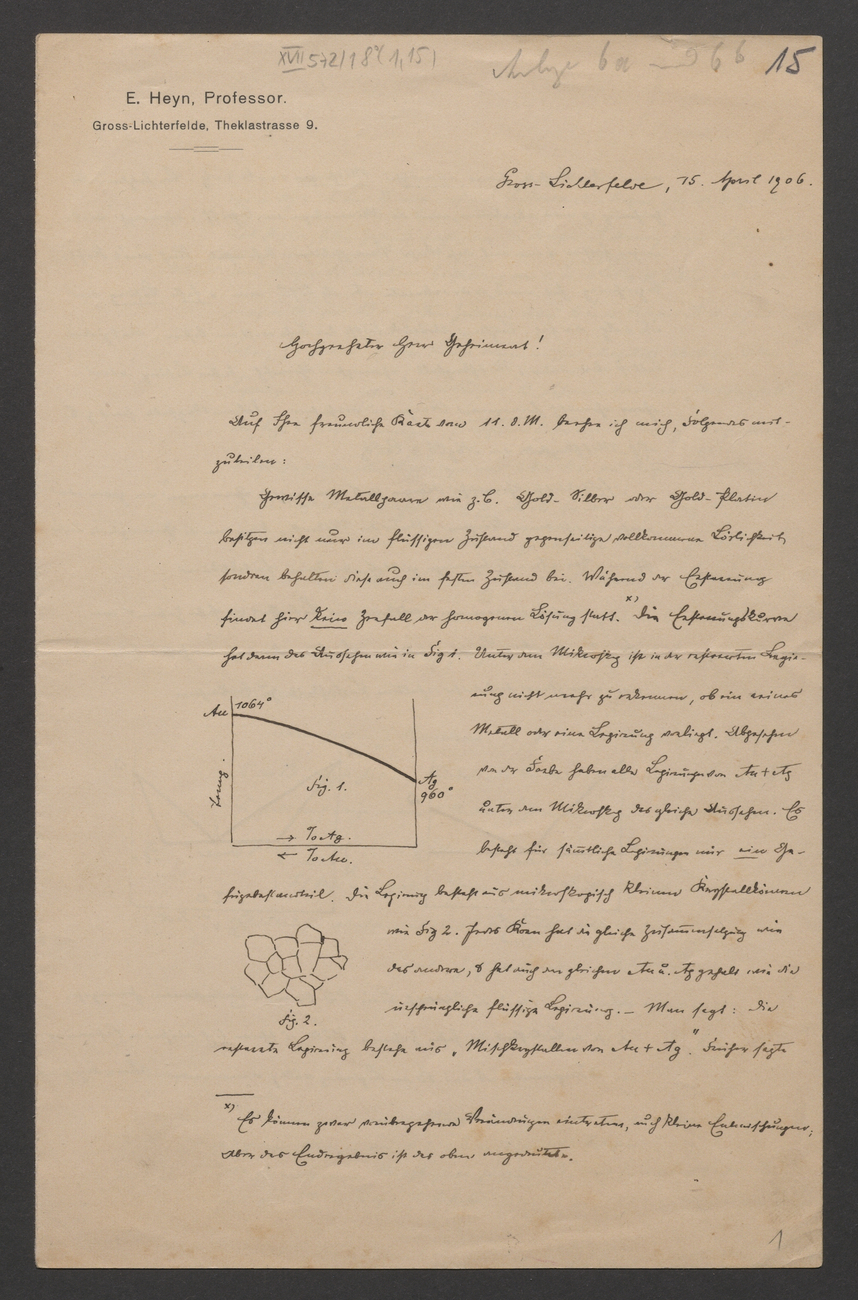 XVII 572/18 (1,15)
Anlage 6a
15
E. Heyn, Professor.
Gross-Lichterfelde, Theklastrasse 9.
Gross-Lichterfelde, 15. April 1906.
Hochgeehrter Herr Geheimrat!
Auf Ihre freundliche Karte vom 11. d. M. beehre ich mich, Folgendes mit-
zuteilen:
Gewisse Metallpaare wie z.B. Gold-Silber oder Gold-Platin
besitzen nicht nur im flüssigen Zustand gegenseitige vollkommene Löslichkeit,
sondern behalten diese auch im festen Zustand bei. Während der Erstarrung
findet hier kein Zerfall der homogenen Lösung statt. x) Die Erstarrungskurve
hat dann das Aussehen wie in Fig 1. Unter dem Mikroskop ist in der erstarrten Legie-
rung nicht mehr zu erkennen, ob ein reines
Metall oder eine Legierung vorliegt. Abgesehen
von der Farbe haben alle Legierungen von Au + Ag
unter dem Mikroskop das gleiche Aussehen. Es
besteht für sämtliche Legierungen nur ein Ge-
fügebestandteil. Die Legierung besteht aus mikroskopisch kleinen Krystallkörnern
Au 1064°
Temp.
Fig. 1.
Ag
960°
→ % Ag.
← % Au.
wie Fig 2. Jedes Korn hat die gleiche Zusammensetzung wie
das andere, & hat auch den gleichen Au u. Ag gehalt wie die
ursprüngliche flüssige Legierung. — Man sagt: die
Fig. 2.
erstarrte Legierung bestehe aus „Mischkrystallen von Au + Ag". Früher sagte
x) Es können zwar vorübergehende Veränderungen eintreten, auch kleine Entmischungen;
aber das Endergebnis ist das oben angedeutete.
1